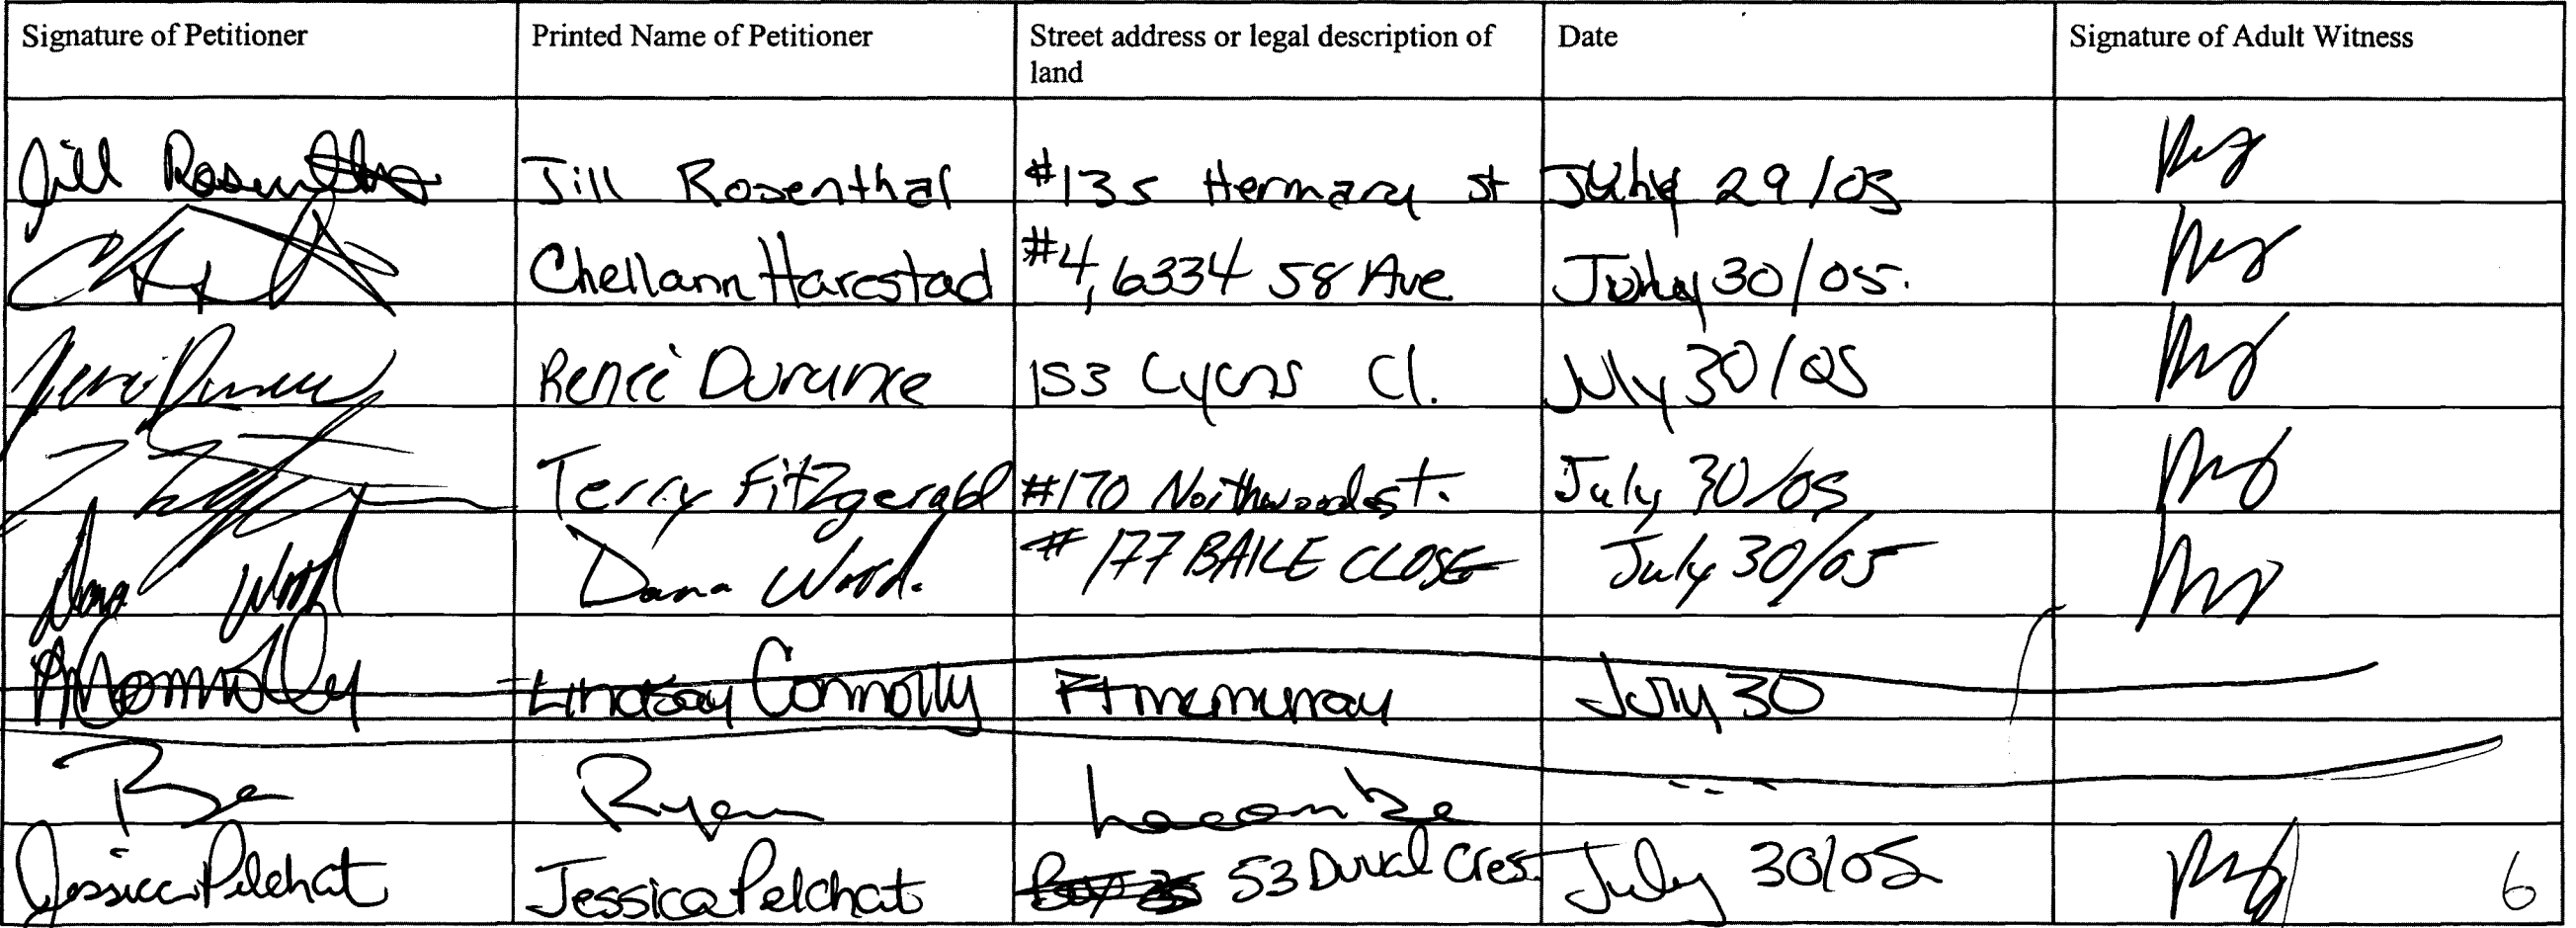 Signature of Petitioner Printed Name of Petitioner Street address or legal description of land Date Signature of Adult Witness
Jill Rosenthal Jill Rosenthal #135 Hermary st July 29/05
Chellann Harestad #4, 6334 58 Ave July 30/05.
Reneé Durance 153 Lyons Cl. July 30/05
Terry Fitzgerald #170 Northwood st. July 30/05
Dana Wood Dana Wood. #177 BAILE CLOSE July 30/05
Connolly Lindsay Connolly Ft mcmurray July 30
Ryan Lacombe
Jessica Pelchat Jessica Pelchat 53 Duval Cres. July 30/05
6